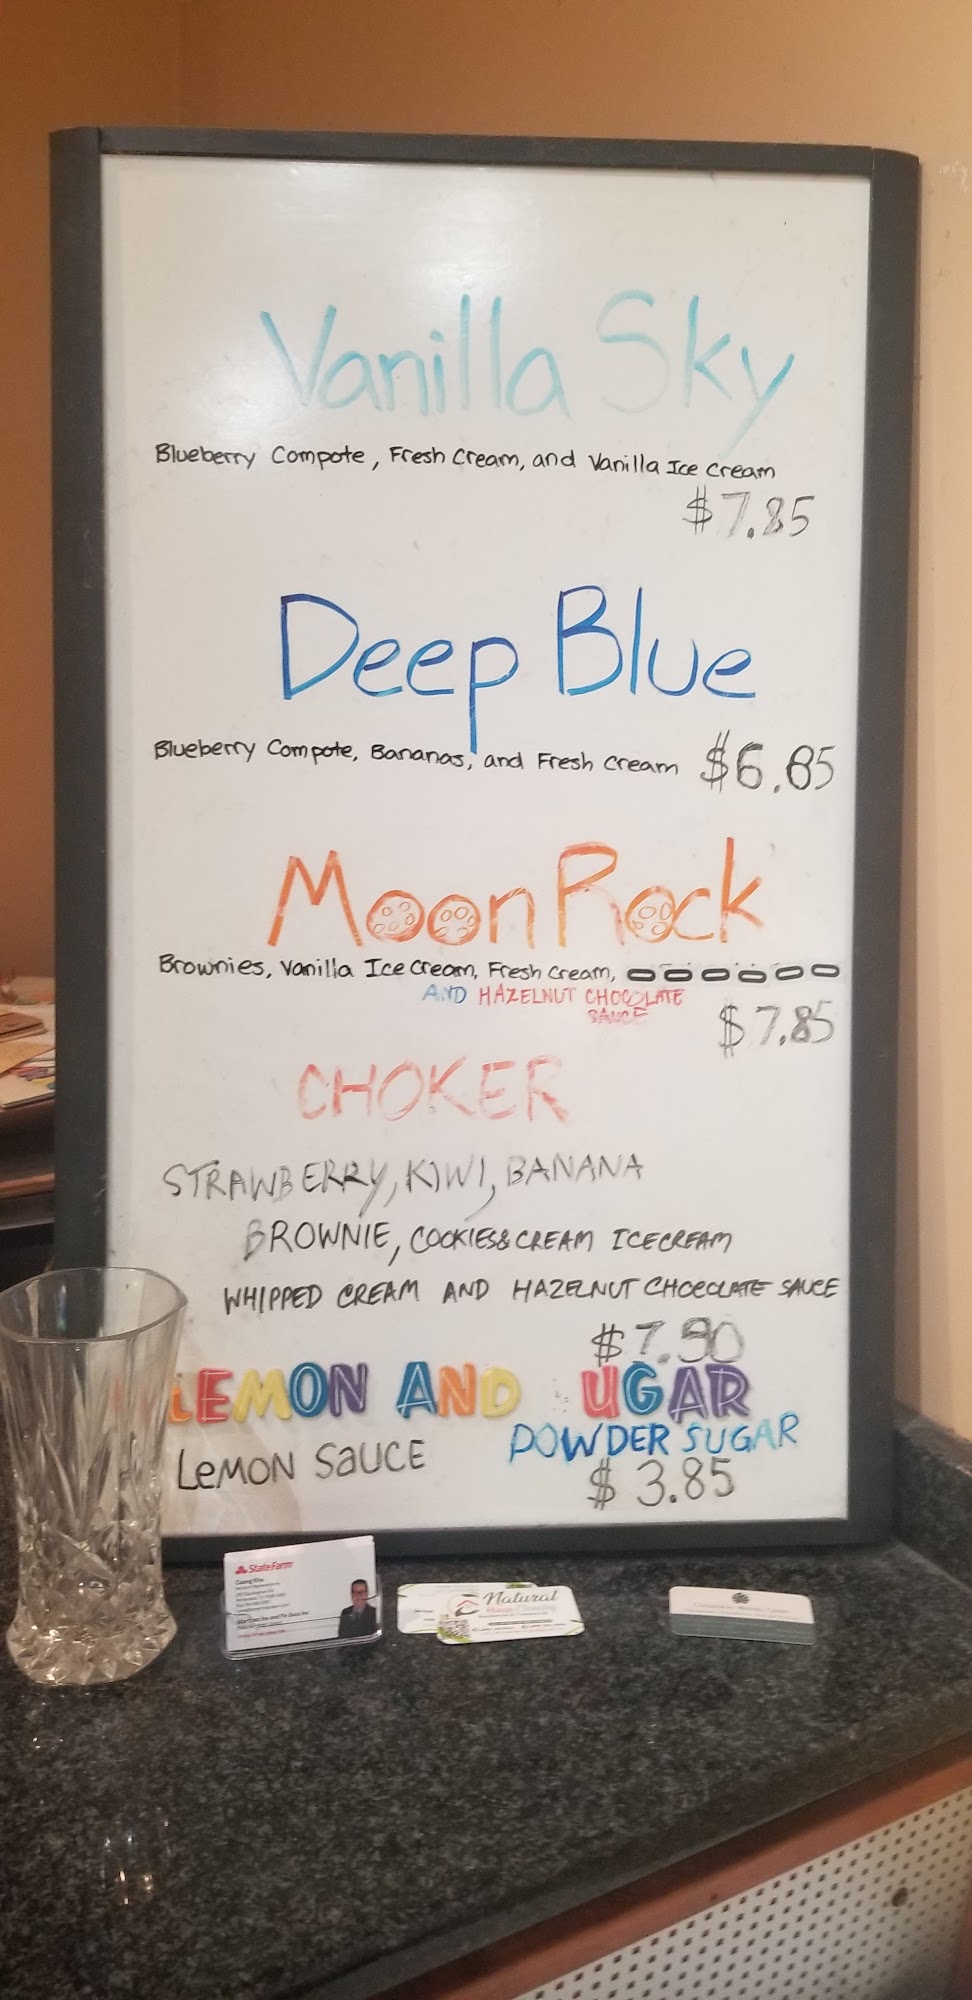 Vanilla Sky
Blueberry Compote, Fresh Cream, and Vanilla Ice Cream
$7.85
Deep Blue
Blueberry Compote, Bananas, and Fresh Cream $6.85
Moon Rock
Brownies, Vanilla Ice Cream, Fresh Cream,
AND HAZELNUT CHOCOLATE
SAUCE
$7.85
CHOKER
STRAWBERRY, KIWI, BANANA
BROWNIE, COOKIES&CREAM ICECREAM
WHIPPED CREAM AND HAZELNUT CHOCOLATE SAUCE
$7.90
LEMON AND UGAR
LEMON SAUCE POWDER SUGAR
$3.85
State Farm
Natural